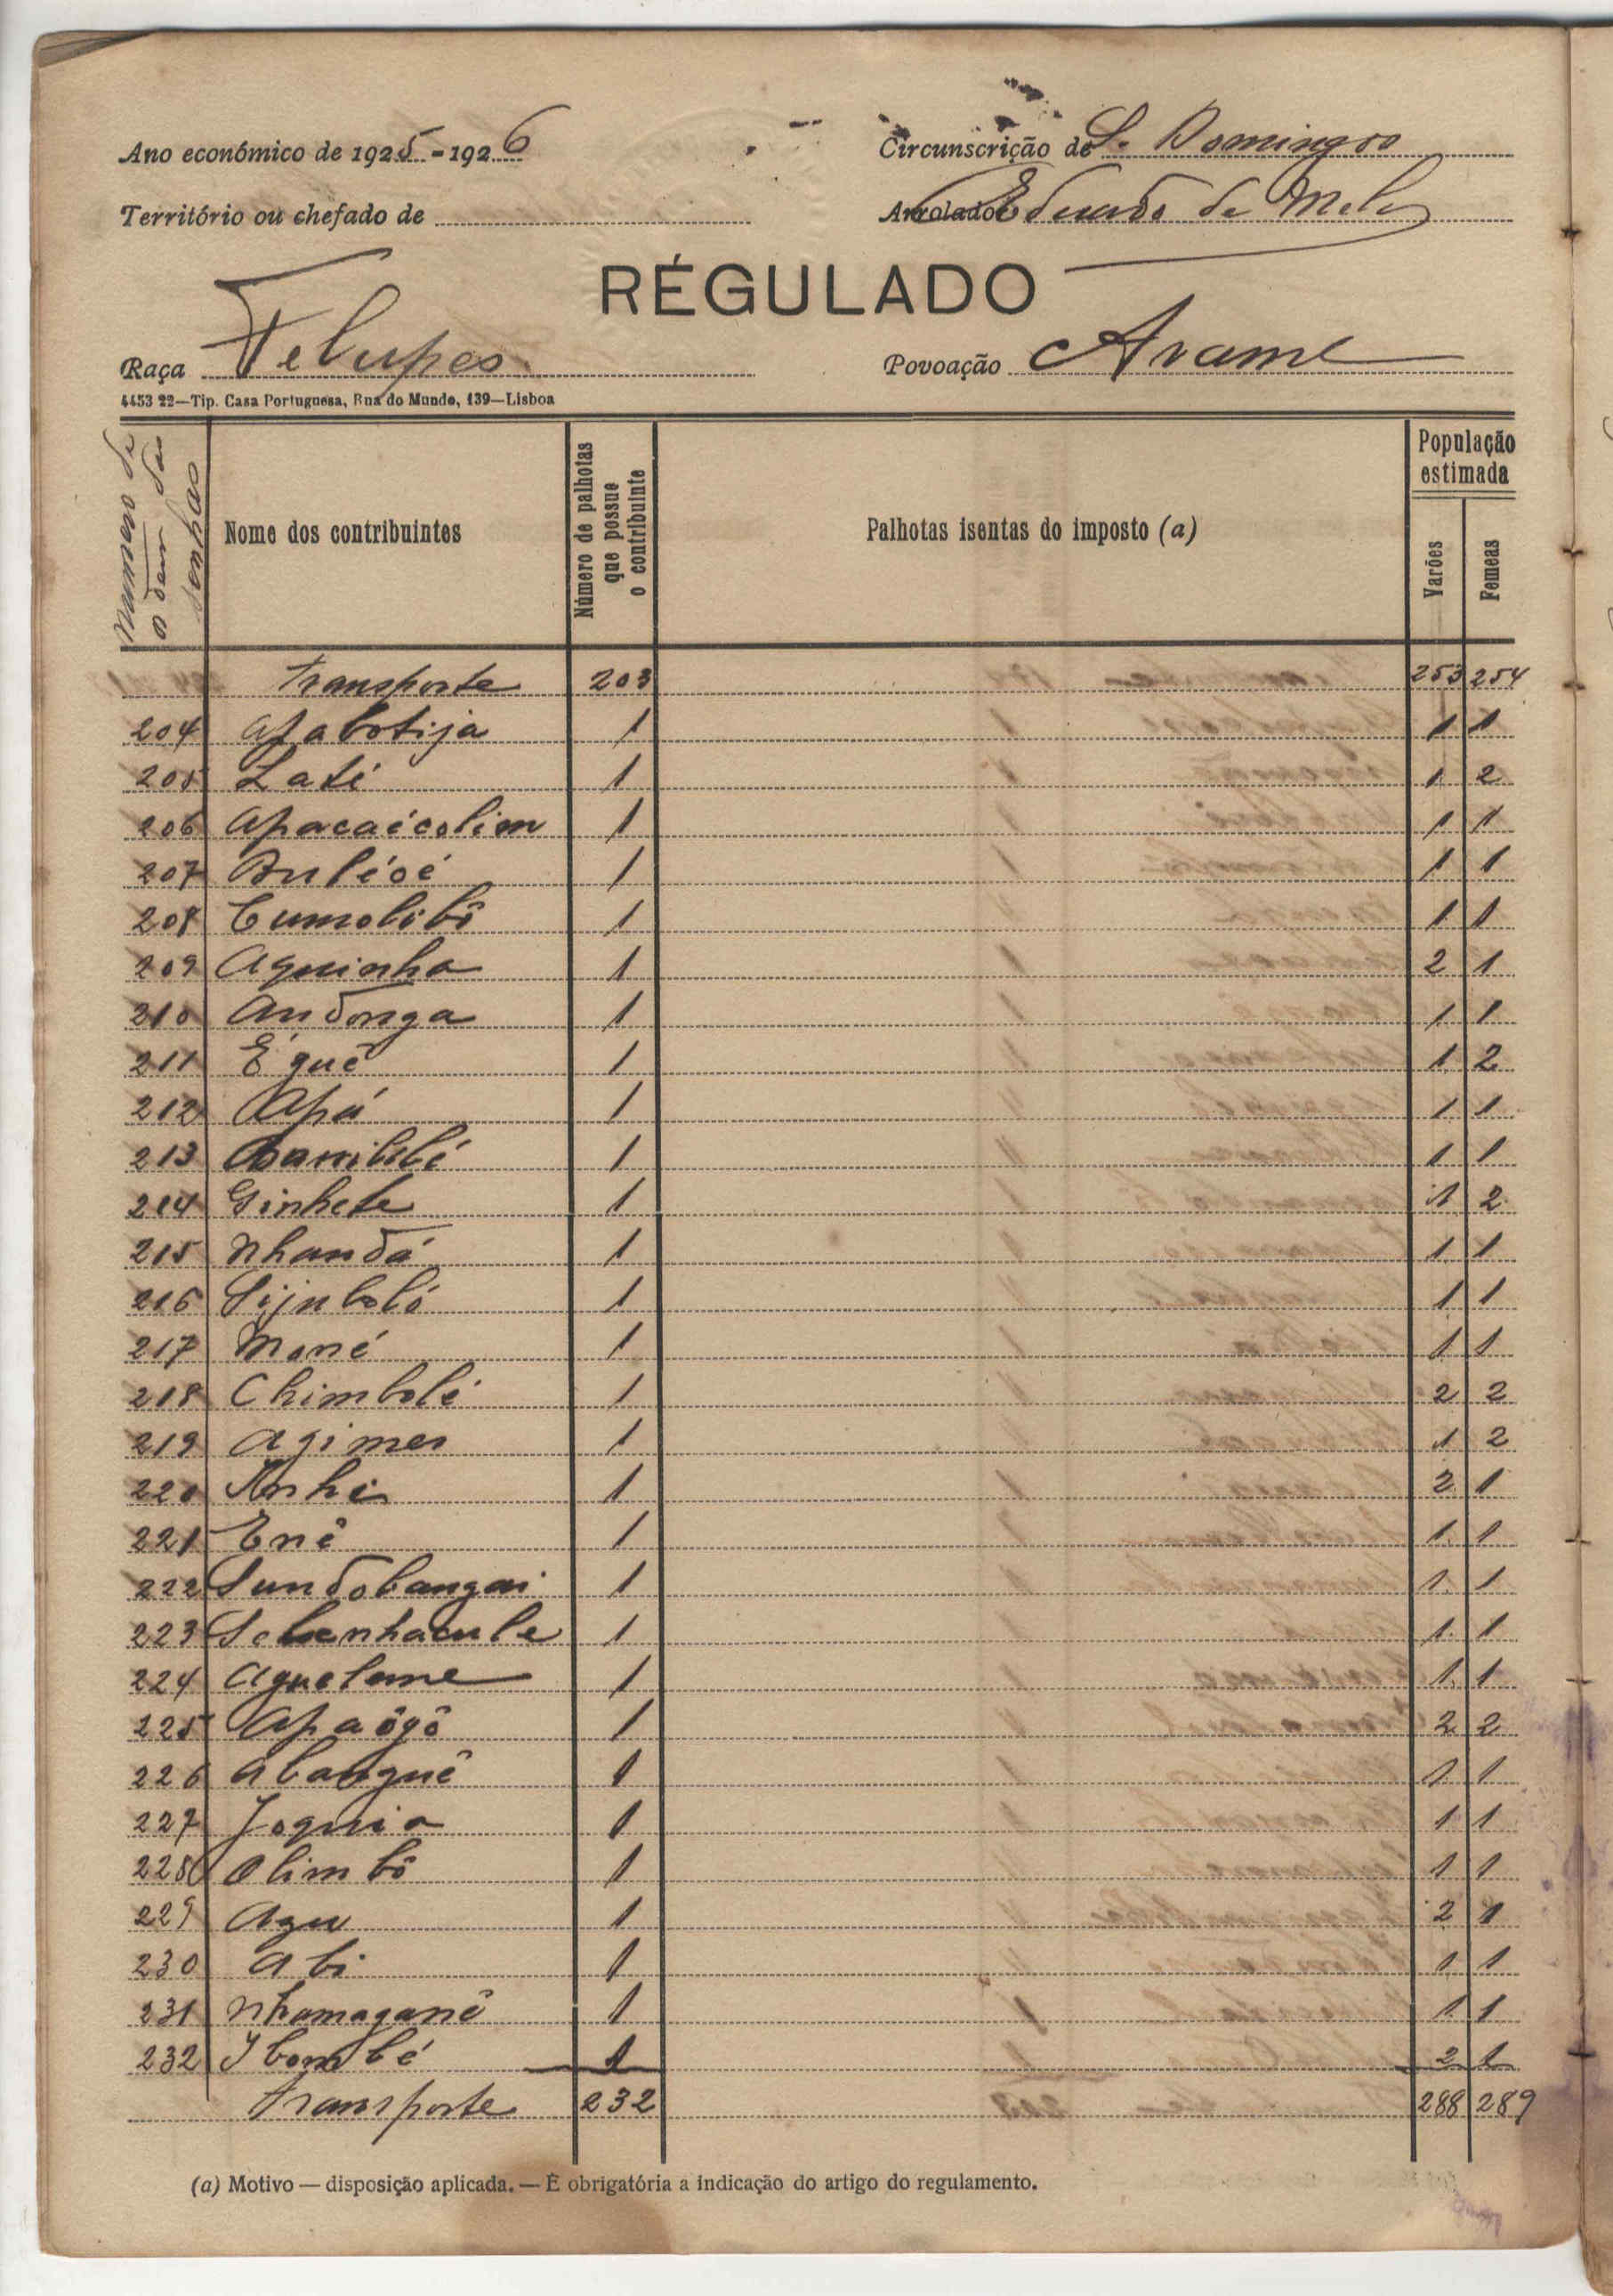 Ano económico de 1925-1926
Circunscrição de S. Domingos
Território ou chefado de
Arrolador Eduardo de Melo
RÉGULADO
Raça Felupes
Povoação Arame
4453 22—Tip. Casa Portuguesa, Rua do Mundo, 139—Lisboa
Numeros de o dem das senhas
Nome dos contribuintes
Número de palhotas que possue o contribuinte
Palhotas isentas do imposto (a)
População estimada
Varões
Femeas
Transporte 203 253 254
204 Apabotija 1 1 1
205 Lati 1 1 2
206 Apacaicolim 1 1 1
207 Buléoé 1 1 1
208 Cumolibô 1 1 1
209 Aquinha 1 2 1
210 Andonga 1 1 1
211 Éguê 1 1 2
212 Apá 1 1 1
213 1 1 1
214 Ginhete 1 1 2
215 Nhandá 1 1 1
216 Sijnboló 1 1 1
217 Moné 1 1 1
218 Chimbolé 1 2 2
219 Agimes 1 1 2
220 Anhi 1 2 1
221 Enê 1 1 1
222 Sundobangai 1 1 1
223 1 1 1
224 Aguelume 1 1 1
225 Apaôgô 1 2 2
226 Abaoguê 1 1 1
227 Joquia 1 1 1
228 Olimbô 1 1 1
229 Agu 1 2 1
230 Abi 1 1 1
231 Nhomaganê 1 1 1
232 Ibombé 1 2 1
Transporte 232 288 289
(a) Motivo — disposição aplicada. — É obrigatória a indicação do artigo do regulamento.